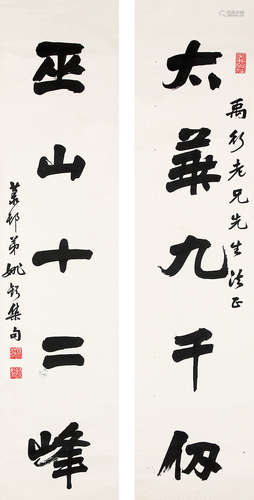 太華九千仞
禹衍老兄先生法正
巫山十二峰
姚弟集句